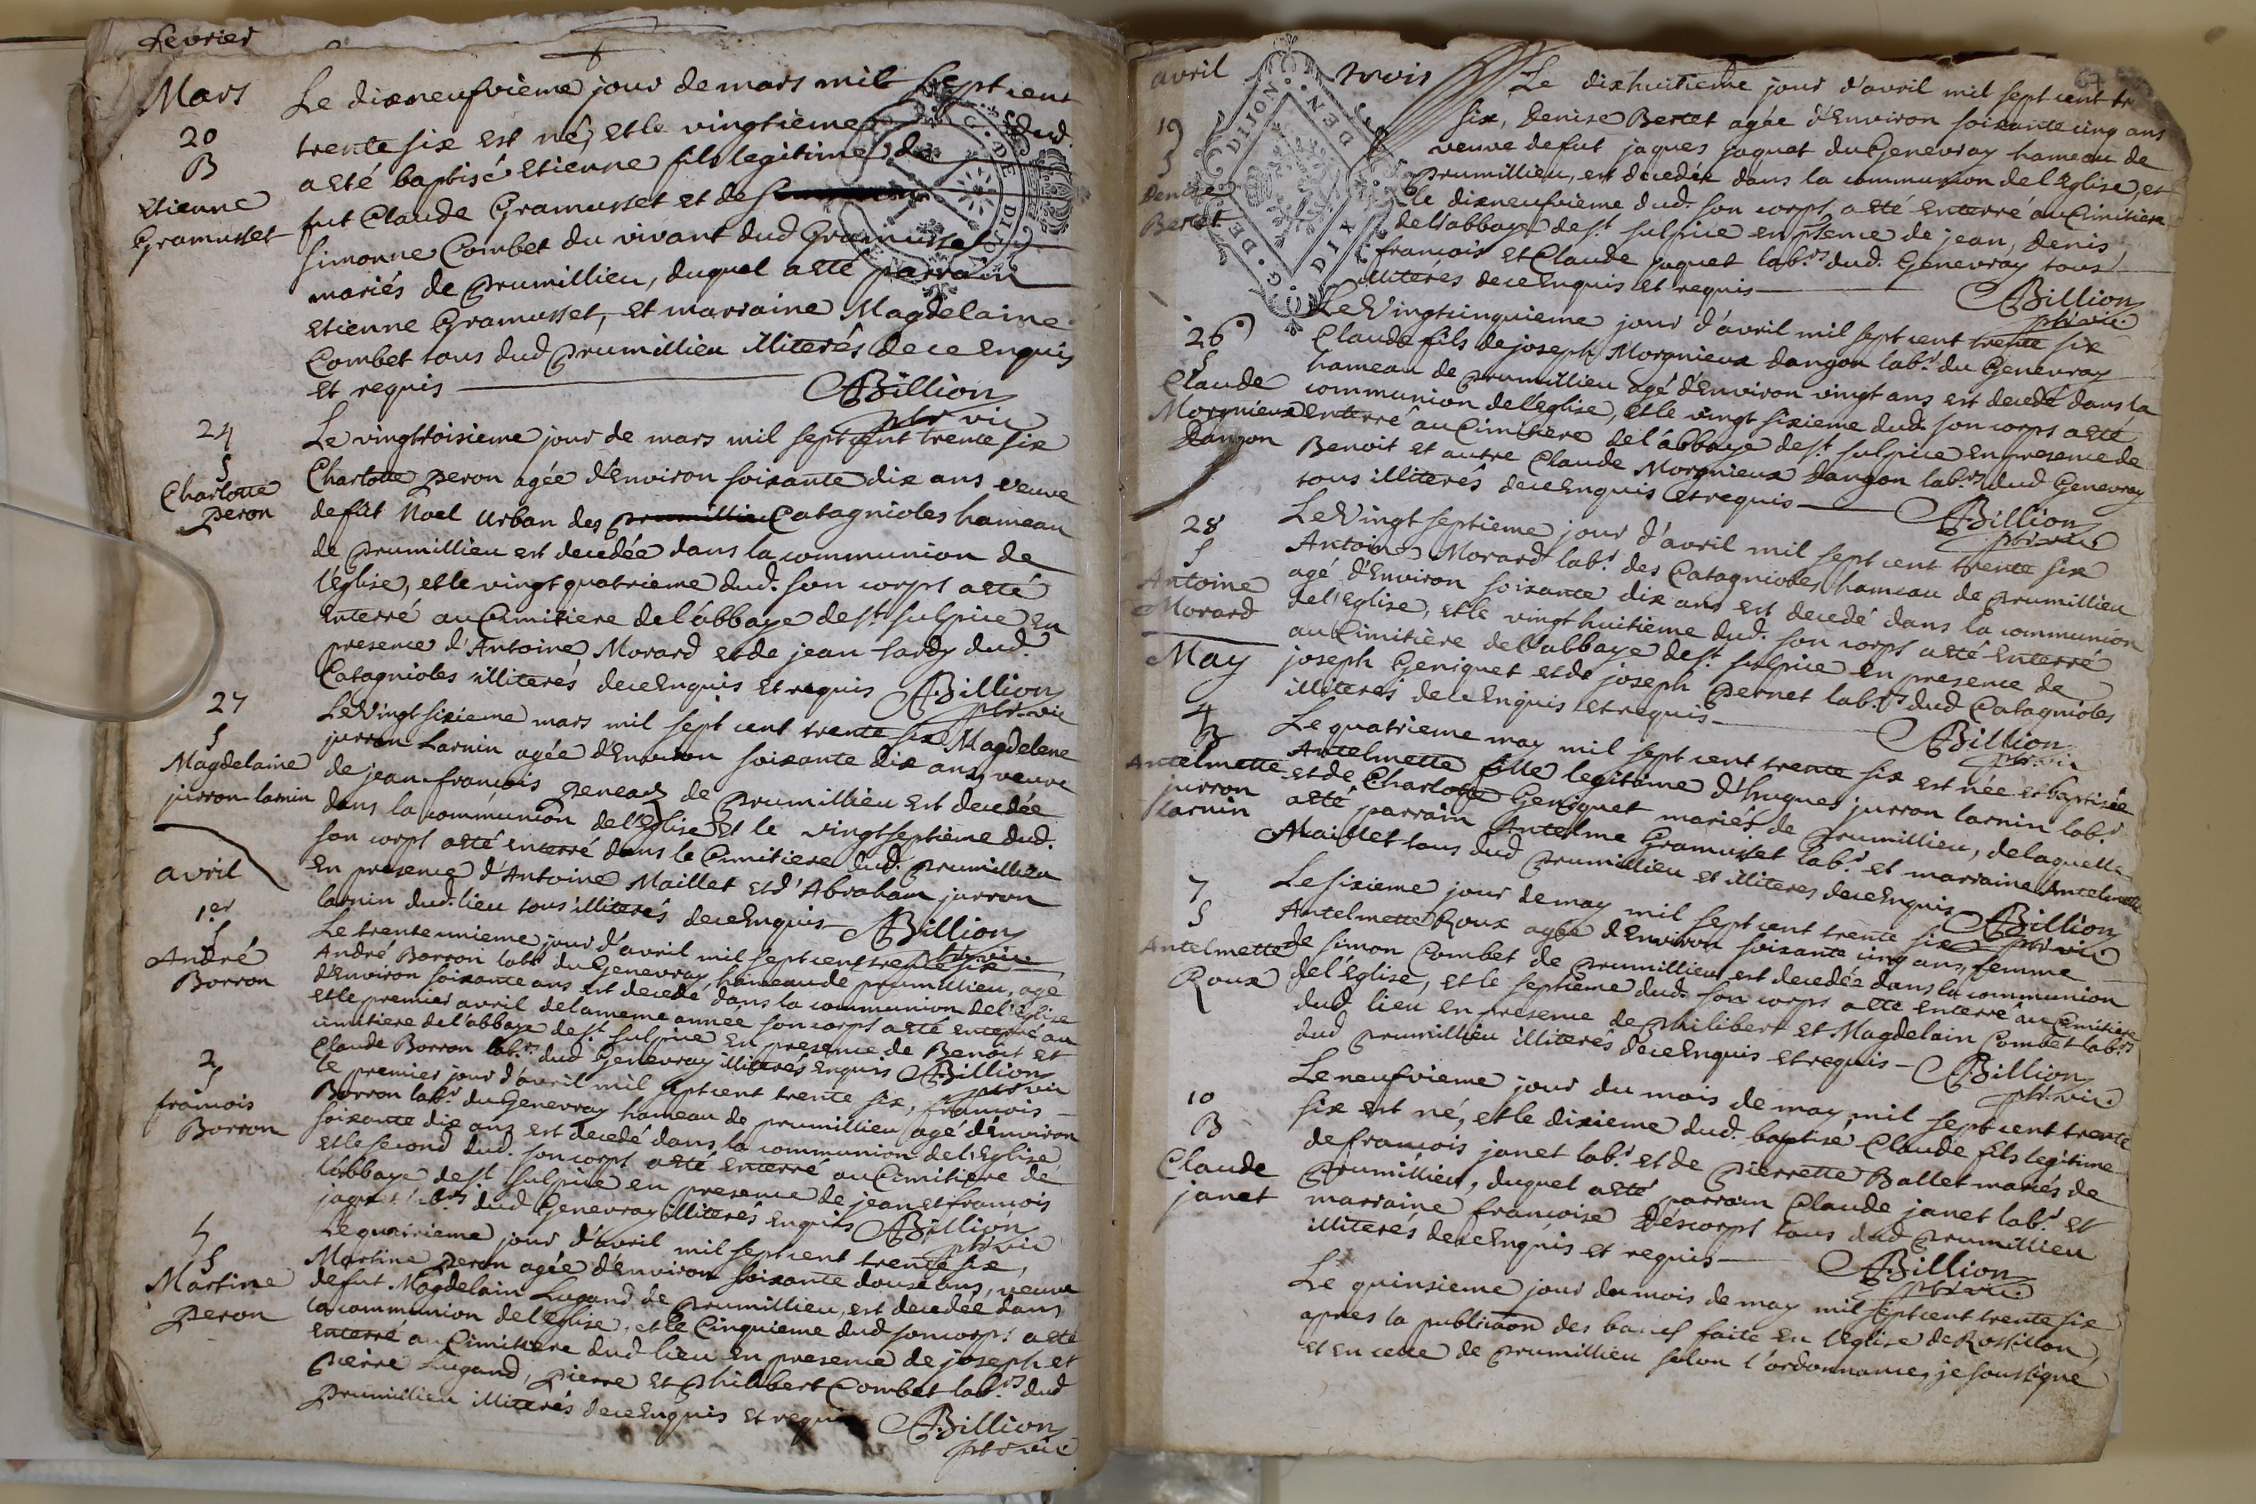 fevrier
Mars
20
B
Etienne
Gramusset
Le dixneufvieme jour de mars mil sept cent
trente six est né, et le vingtieme dud.
a eté baptisé Etienne fils legitime de
fut Claude Gramusset et de
simonne Combet du vivant dud Gramusset
mariés de prumillieu, duquel a eté parrain
Etienne Gramusset, et marraine Magdelaine
Combet tous dud prumillieu illiterés de ce Enquis
et requis
Billion
ptr. vic
24
S
Charlotte
peron
Le vingttroisieme jour de mars mil sept cent trente six
Charlotte peron agée d'Environ soixante dix ans veuve
de fut Noel Urban des prumillieu Catagnioles hameau
de prumillieu est decedée dans la communion de
l'Eglise, et le vingt quatrieme dud. son corps a eté
Enterré au Cimitiere de l'abbaye de st. sulpice En
presence d'Antoine Morard et de jean hardy dud.
Catagnioles illiterés de ce Enquis et requis Billion
ptr. vic
27
S
Magdelaine
jurron larnin
Le Vingt sixieme mars mil sept cent trente six Magdelene
jurron Larnin agée d'Environ soixante dix ans veuve
de jean francois peneaud de prumillieu est decedée
dans la communion de l'Eglise et le vingtseptieme dud.
son corps a eté enterré dans le Cimitiere dud. prumillieu
En presence d'Antoine Maillet et d'Abraham jurron
larnin dud. lieu tous illiterés de ce Enquis Billion
ptr. vic
avril
1er
S
André
Borron
Le trente unieme jour d'avril mil sept cent trente six
André Borron labr du Genevray, hameau de prumillieu, agé
d'Environ soixante ans est decedé dans la communion de l'Eglise
et le premier avril de la meme année son corps a eté enterré au
cimitiere de l'abbaye de st. sulpice En presence de Benoit et
Claude Borron labrs dud Genevray illiterés Enquis Billion
ptr. vic
2
S
francois
Borron
le premier jour d'avril mil sept cent trente six, francois
Borron labr du Genevray hameau de prumillieu agé d'Environ
soixante dix ans est decedé dans la communion de l'Eglise
et le second dud. son corps a eté Enterré au Cimitiere de
l'abbaye de st sulpice en presence de jean et francois
jaquet labrs dud Genevray illiterés Enquis Billion
ptr. vic
5
S
Martine
peron
Le quatrieme jour d'avril mil sept cent trente six,
Martine peron agée d'Environ soixante douze ans, veuve
de fut Magdelain Lugand de prumillieu, est decedée dans
la communion de l'Eglise, et le Cinquieme dud son corps a eté
Enterré au Cimitiere dud lieu En presence de joseph et
pierre Lugand, pierre et philibert Combet labrs dud
prumillieu illiterés de ce Enquis et requis Billion
ptr. vic
67
avril
19
S
Denise
Bertet
G. DE DIJON
DEN
DIX
trois
Le dixhuitieme jour d'avril mil sept cent tr
six, Denise Bertet agée d'Environ soixante cinq ans
veuve de fut jaques jaquet du Genevray hameau de
prumillieu, est decedée dans la communion de l'Eglise, et
le dixneufvieme dud. son corps a eté Enterré au Cimitiere
de l'abbaye de st. sulpice en psence de jean, Denis
francois et Claude jaquet labrs dud. Genevray tous
illiteres de ce Enquis et requis Billion
ptr. vic.
26
S
Claude
Morgnieux
Dangon
Le Vingtcinquieme jour d'avril mil sept cent trente six
Claude fils de joseph Morgnieux dangon labr du Genevray
hameau de prumillieu agé d'Environ vingt ans est decedé dans la
communion de l'Eglise, et le vingt sixieme dud. son corps a eté
Enterré au Cimitiere de l'abbaye de st. sulpice En presence de
Benoit et autre Claude Morgnieux Dangon labrs dud Genevray
tous illiterés de ce Enquis et requis Billion
ptr. vic
28
S
Antoine
Morard
Le Vingt septieme jour d'avril mil sept cent trente six
Antoine Morard labr des Catagnioles hameau de prumillieu
agé d'Environ soixante dix ans est decedé dans la communion
de l'Eglise, et le vingt huitieme dud. son corps a eté Enterré
au Cimitière de l'abbaye de st. sulpice En presence de
joseph Geniquet et de joseph pernet labrs dud Catagnioles
illiteres de ce Enquis et requis Billion
ptr. vic
May
4
B
Antelmette
jurron
larnin
Le quatrieme may mil sept cent trente six est née et baptisée
Antelmette fille legitime d'hugues jurron larnin labr
et de Charlotte Geniquet mariés de prumillieu, de laquelle
a eté parrain Antelme Gramusset labr et marraine Antelmette
Maillet tous dud prumillieu et illiteres de ce Enquis Billion
ptr. vic
7
S
Antelmette
Roux
Le sixieme jour de may mil sept cent trente six
Antelmette Roux agée d'Environ soixante cinq ans, femme
de simon Combet de prumillieu est decedée dans la communion
de l'Eglise, et le septieme dud. son corps a eté enterré au Cimitiere
dud lieu en presence de philibert et Magdelain Combet labrs
dud prumillieu illiterés de ce Enquis et requis Billion
ptr. vic
10
B
Claude
janet
Le neufvieme jour du mois de may mil sept cent trente
six est né, et le dixieme dud. baptisé Claude fils legitime
de francois janet labr et de pierrette Ballet mariés de
prumillieu, duquel a eté parrain Claude janet labr et
marraine francoise Déscorps tous dud prumillieu
illiterés de ce Enquis et requis Billion
ptr. vic
Le quinsieme jour du mois de may mil sept cent trente six
apres la publicaõn des bancs faite En l'Eglise de Rossillon,
et en celle de prumillieu selon l'ordonnance, je soussigné